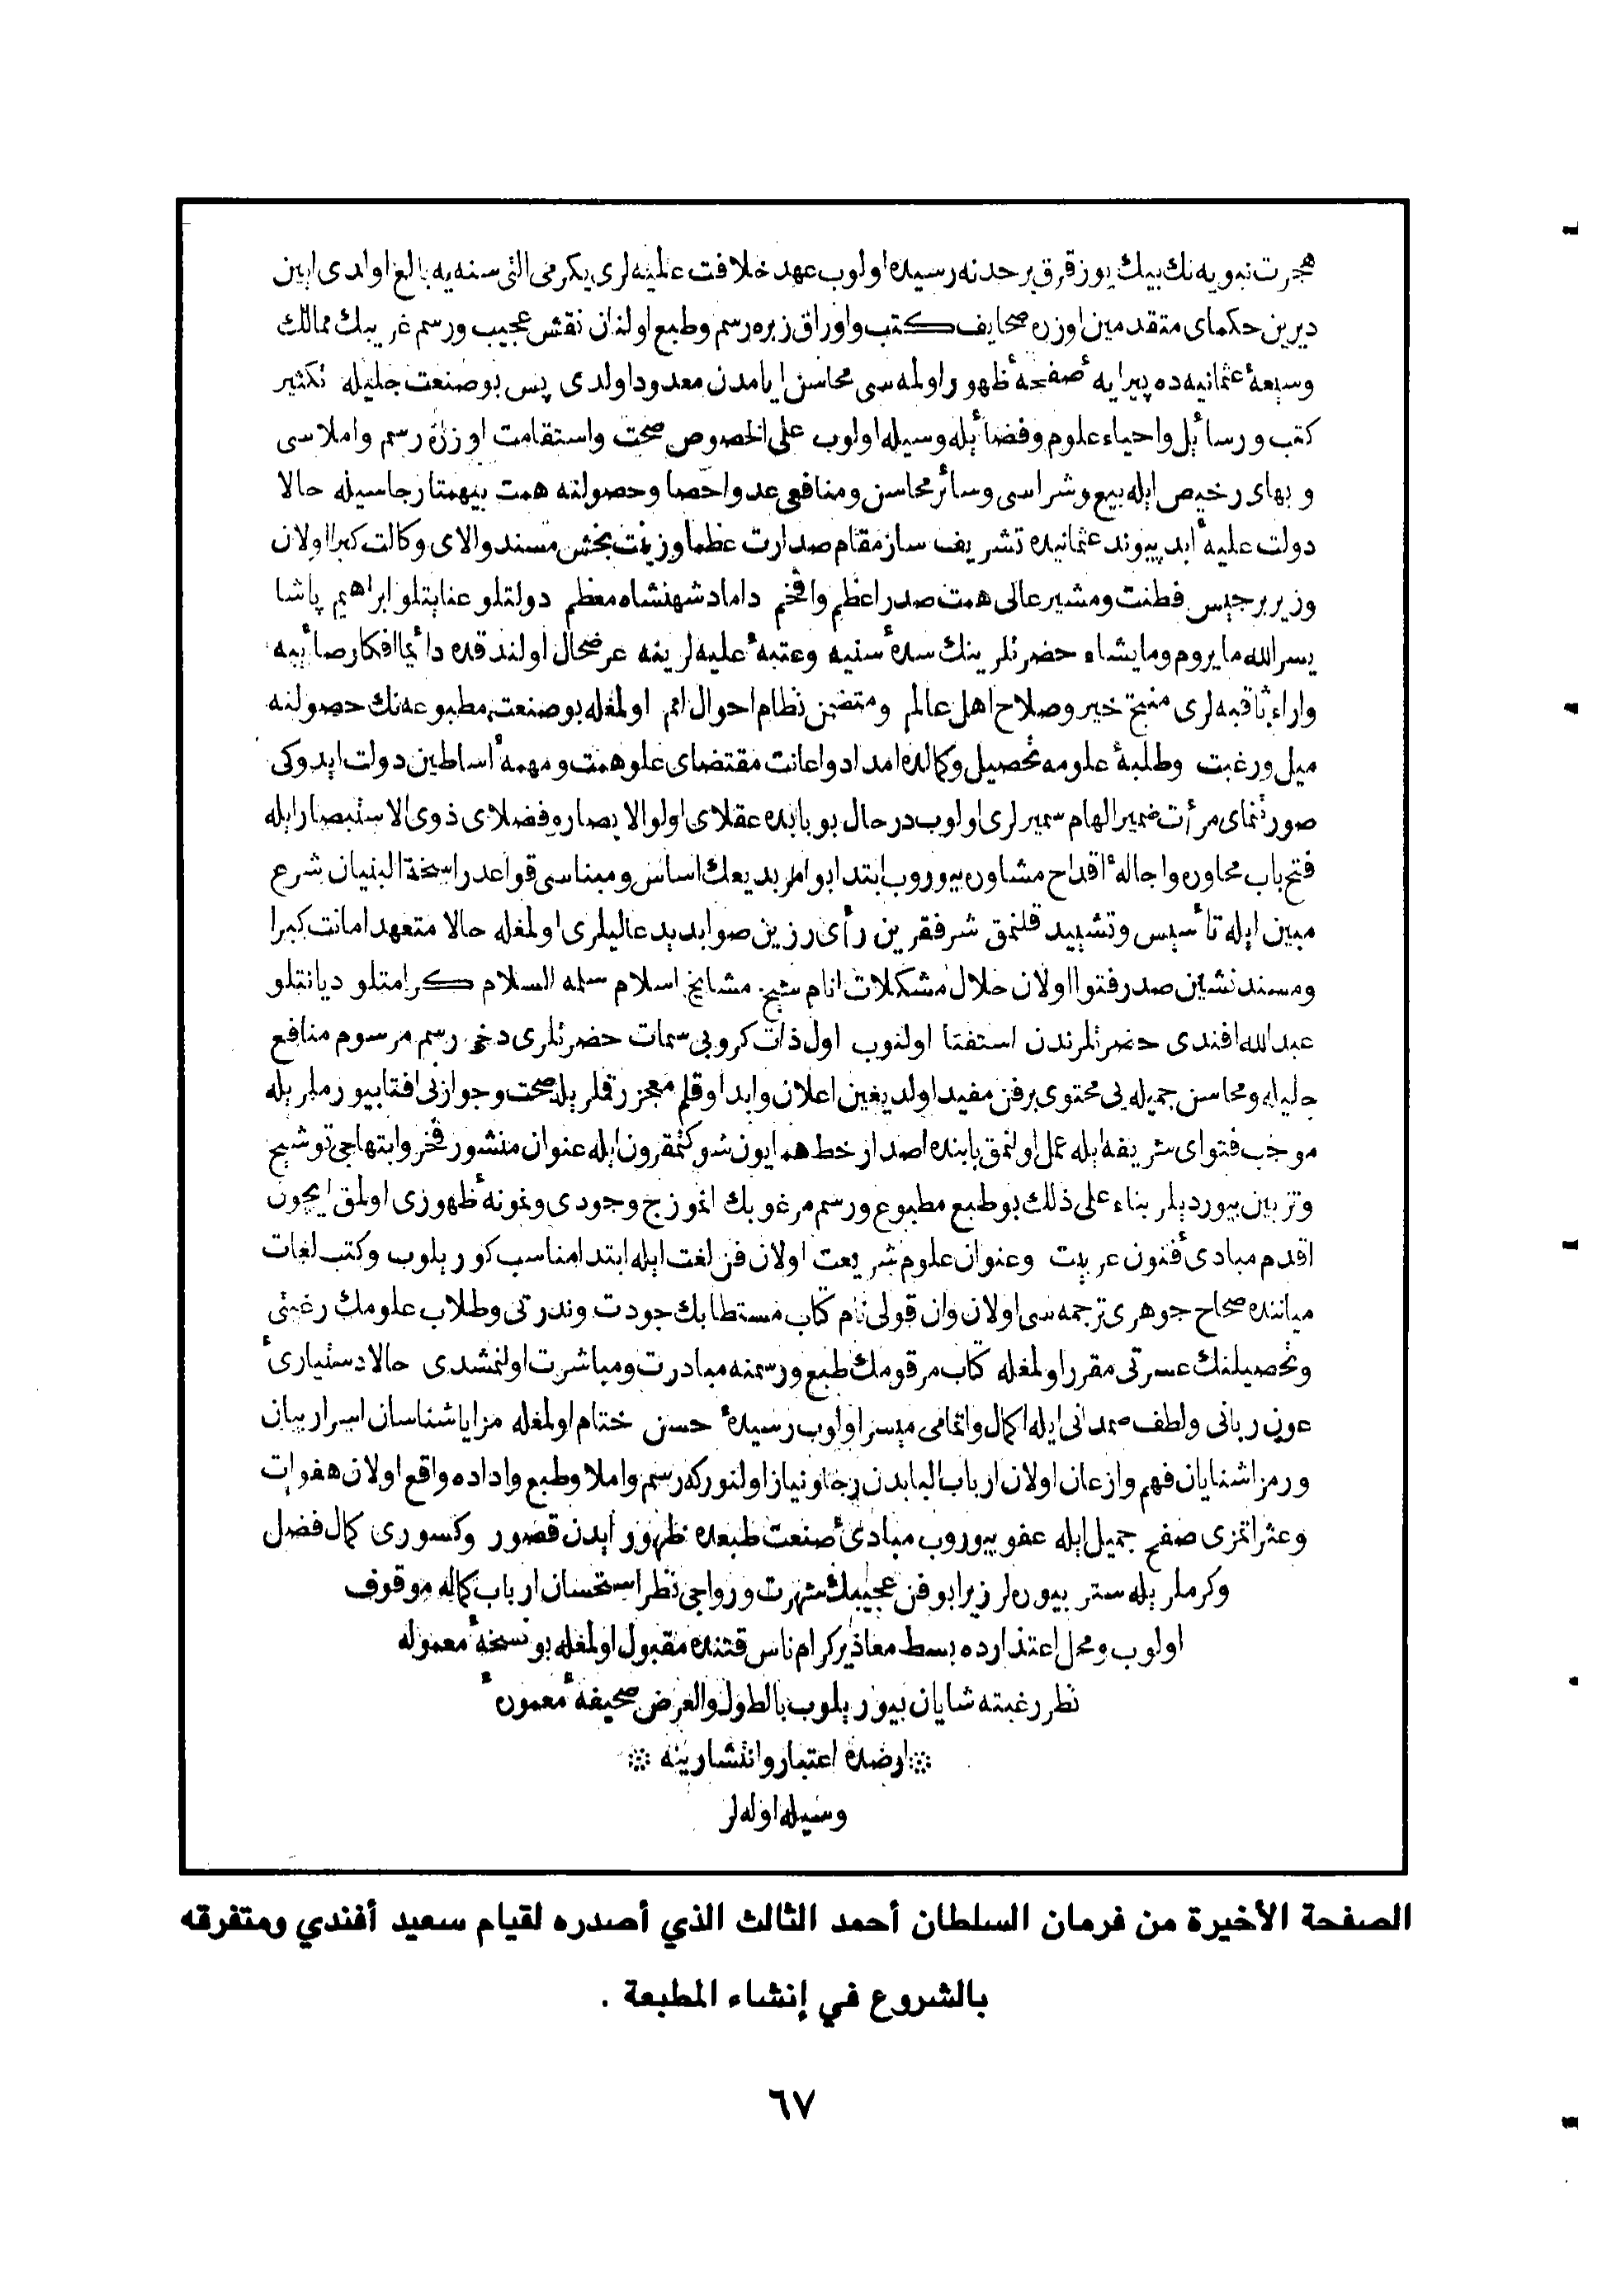 هجرت نبويه نك بيك يوز قرق بر حدنه رسيده اولوب عهد خلافت عليه لرى يكرمى التى سنه يه بالغ اولدى ايين
ديرين حكماى متقدمين اوزره صحايف كتب و اوراق زبره رسم و طبع اولنان نقش عجيب و رسم غريبك ممالك
وسيعۀ عثمانيه ده پيرايه ٔ صفحه ٔ ظهور اولمه سى محاسن ايامدن معدود اولدى پس بو صنعت جليله تكثير
كتب و رسائل و احياء علوم و فضائله وسيله اولوب على الخصوص صحت و استقامت اوزره رسم و املاسى
و بهاى رخيص ايله بيع و شراسى و سائر محاسن و منافعى عد و احصا و حصولنه همت بيهمتا رجاسيله حالا
دولت عليه ٔ ابد پيوند عثمانيده تشريف ساز مقام صدارت عظما و زينت بخش مسند والاى وكالت كبرا اولان
وزير برجيس فطنت و مشير عالى همت صدر اعظم و افخم داماد شهنشاه معظم دولتلو عنايتلو ابراهيم پاشا
يسر الله ما يروم وما يشاء حضرتلرينك سدۀ سنيه و عتبه ٔ عليه لرينه عرضحال اولندقده دائما افكار صائبه
واراء ثاقبه لرى منتج خير و صلاح اهل عالم و متضمن نظام احوال امم اولمغله بو صنعت مطبوعه نك حصولنه
ميل و رغبت و طلبۀ علومه تحصيل و كمالده امداد و اعانت مقتضاى علو همت و مهمه ٔ اساطين دولت ايدوكى
صورتنماى مرأت ضمير الهام سميرلرى اولوب درحال بو بابده عقلاى اولو الابصار و فضلاى ذوى الاستبصار ايله
فتح باب محاوره و اجاله ٔ اقداح مشاوره بيوروب ابتدا بو امر بديعك اساس و مبناسى قواعد راسخة البنيان شرع
مبين ايله تأسيس و تشييد قلنمق شرفقرين رأى رزين صوابديد عاليلرى اولمغله حالا متعهد امانت كبرا
و مسند نشين صدر فتوا اولان حلال مشكلات انام شيخ مشايخ اسلام سلمه السلام كرامتلو ديانتلو
عبد الله افندى حضرتلرندن استفتا اولنوب اول ذات كروبى سمات حضرتلرى دخى رسم مرسوم منافع
جليله و محاسن جميله يى محتوى بر فن مفيد اولديغين اعلان و ابدا و قلم معجز رقملريله صحت و جوازنى افتا بيورملريله
موجب فتواى شريفه ايله عمل اولنمق بابنده اصدار خط همايون شوكتمقرون ايله عنوان منشور فخر و ابتهاجى توشيح
و تزيين بيورديلر بناء على ذلك بو طبع مطبوع و رسم مرغوبك انموزج وجودى و نمونه ٔ ظهورى اولمق ايچون
اقدم مبادئ فنون عربيت و عنوان علوم شريعت اولان فن لغت ايله ابتدا مناسب كوريلوب و كتب لغات
مياننده صحاح جوهرى ترجمه سى اولان وان قولى نام كتاب مستطابك جودت و ندرتى و طلاب علومك رغبتى
و تحصيلنك عسرتى مقرر اولمغله كتاب مرقومك طبع و رسمنه مبادرت و مباشرت اولنمشدى حالا دستيارئ
عون ربانى و لطف صمدانى ايله اكمال و اتمامى ميسر اولوب رسيدۀ حسن ختام اولمغله مزايا شناسان اسرار بيان
و رمز اشنايان فهم و ازعان اولان ارباب البابدن رجا و نياز اولنور كه رسم و املا و طبع و اداده واقع اولان هفوات
و عثراتمزى صفح جميل ايله عفو بيوروب مبادئ صنعت طبعده ظهور ايدن قصور و كسورى كمال فضل
و كرملريله ستر بيوره لر زيرا بو فن عجيبك شهرت و رواجى نظر استحسان ارباب كماله موقوف
اولوب و محل اعتذارده بسط معاذير كرام ناس قتنده مقبول اولمغله بو نسخه ٔ معموله
نظر رغبته شايان بيوريلوب بالطول والعرض صحيفه ٔ معموره ٔ
ارضده اعتبار و انتشارينه
وسيله اوله لر
الصفحة الأخيرة من فرمان السلطان أحمد الثالث الذي أصدره لقيام سعيد أفندي ومتفرقه
بالشروع في إنشاء المطبعة .
٦٧